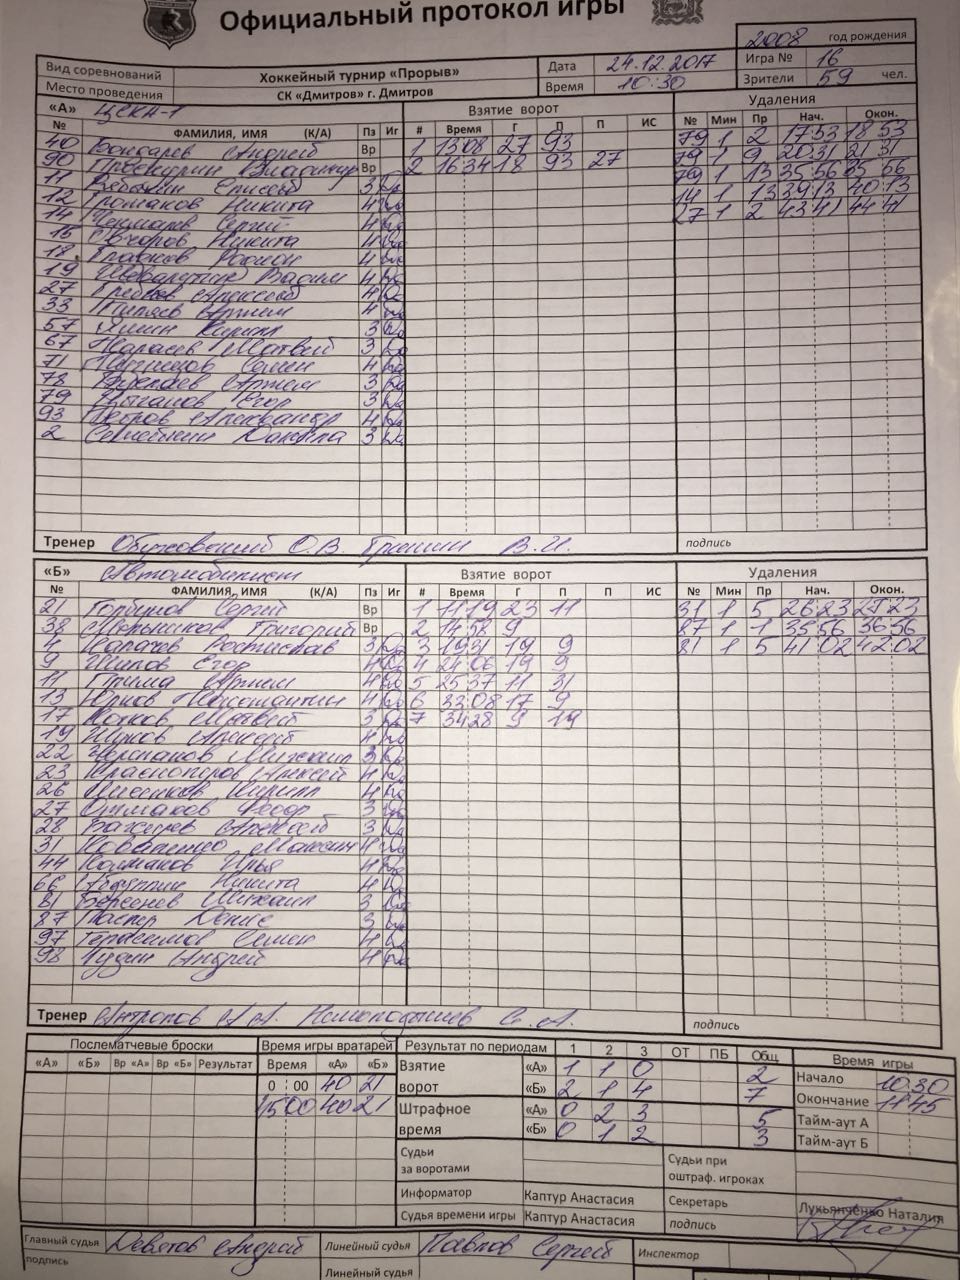 Официальный протокол игры
2008 год рождения
Вид соревнований Хоккейный турнир «Прорыв» Дата 24.12.2017 Игра № 16
Место проведения СК «Дмитров» г. Дмитров Время 10:30 Зрители 59 чел.
«А» ЦСКА-1 Взятие ворот Удаления
№ ФАМИЛИЯ, ИМЯ (К/А) Пз Иг # Время Г П П ИС № Мин Пр Нач. Окон.
40 Андрей Вр 1 13:08 27 93 79 1 2 17:53 18:53
90 Проскурин Владимир Вр 2 16:34 18 93 27 79 1 9 20:31 21:31
11 Елисей 3 Да 79 1 13 35:56 36:56
12 Громаков Никита 4 Да 14 1 13 39:13 40:13
14 Сергей 4 Да 27 1 2 43:41 44:41
15 Никита 4 Да
18 Родион 4 Да
19 Вадим 4 Да
27 Гребнев Алексей 4 Да
33 Артем 4 Да
57 Кирилл 3 Да
67 Карасев Матвей 3 Да
71 Семен 4 Да
78 Артем 3 Да
79 Цыганов Егор 3 Да
93 Петров Александр 4 Да
2 Данила 3 Да
Тренер О.В. В.И. подпись
«Б» Автомобилист Взятие ворот Удаления
№ ФАМИЛИЯ, ИМЯ (К/А) Пз Иг # Время Г П П ИС № Мин Пр Нач. Окон.
21 Горбунов Сергей Вр 1 11:19 23 11 31 1 5 26:23 27:23
38 Григорий Вр 2 14:58 9 87 1 1 35:56 36:56
4 Ростислав 3 Да 3 19:31 19 9 81 1 5 41:02 42:02
9 Шилов Егор 4 Да 4 24:06 19 9
11 Грима Артем 4 Да 5 25:37 11 31
13 Юрков Константин 4 Да 6 33:08 17 9
17 Котков Матвей 3 Да 7 34:28 9 19
19 Алексей 4 Да
22 Михаил 3 Да
23 Красноперов Алексей 4 Да
26 Кирилл 4 Да
27 Федор 3 Да
28 Алексей 3 Да
31 Коваленко Максим 4 Да
44 Колмаков Илья 4 Да
66 Никита 4 Да
81 Берсенев Михаил 3 Да
87 Гастер Денис 3 Да
97 Герасимов Семен 4 Да
98 Чудин Андрей 4 Да
Тренер Антропов А.А. С.А. подпись
Послематчевые броски Время игры вратарей Результат по периодам 1 2 3 ОТ ПБ Общ Время игры
«А» «Б» Вр «А» Вр «Б» Результат Время «А» «Б» Взятие ворот «А» 1 1 0 2 Начало 10:30
0 : 00 40 21 «Б» 2 1 4 7 Окончание 11:45
45:00 40 21 Штрафное время «А» 0 2 3 5 Тайм-аут А
«Б» 0 1 2 3 Тайм-аут Б
Судьи за воротами Судьи при оштраф. игроках
Информатор Каптур Анастасия Секретарь Лукьянченко Наталия
Судья времени игры Каптур Анастасия подпись
Главный судья Девятов Андрей Линейный судья Павлов Сергей Инспектор
подпись Линейный судья